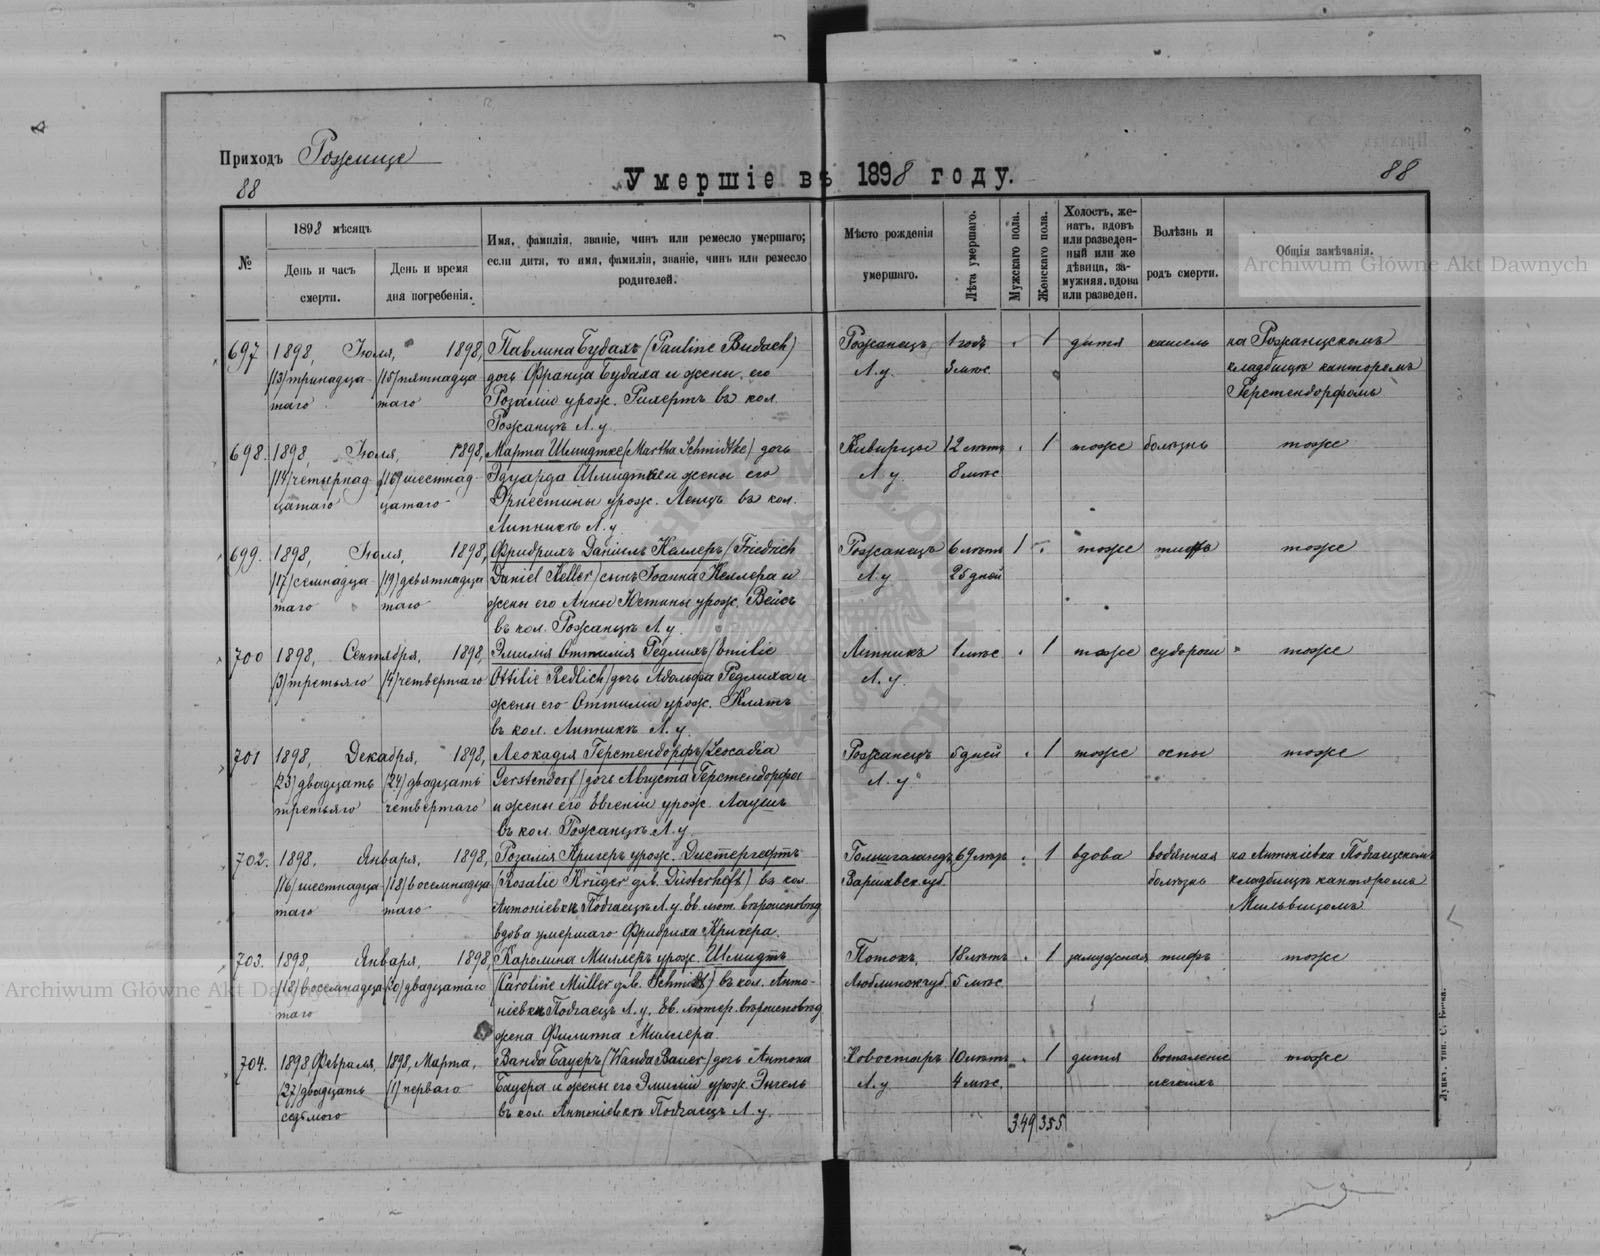 Приходъ Рожище
88
Умершіе въ 1898 году.
88
№
1898 мѣсяцъ
День и часъ смерти.
День и время дня погребенія.
Имя, фамилія, званіе, чинъ или ремесло умершаго;
если дитя, то имя, фамилія, званіе, чинъ или ремесло
родителей.
Мѣсто рожденія
умершаго.
Лѣта умершаго.
Мужскаго пола.
Женскаго пола.
Холостъ, же-
натъ, вдовъ
или разведен-
ный или же
дѣвица, за-
мужняя, вдова
или разведен.
Болѣзнь и
родъ смерти.
Общія замѣчанія.
697 1898, Іюля, 1898, Павлина Будахъ (Pauline Budach) Рожанецъ 1 годъ 1 дитя кашель на Рожанцскомъ
(13) тринадца- (15) пятнадца дочь Франца Будаха и жены его Л. у. 8 мѣс. кладбищѣ канторомъ
таго таго Розалии урож. Рихертъ въ кол. Герстендорфомъ
Рожанцѣ Л. у.
698. 1898, Іюля, 1898, Марта Шмидтке (Martha Schmidtke) дочь Киверцы 12 лѣтъ 1 тоже болѣзнь тоже
(14) четырнад- (16) шестнад- Эдуарда Шмидтке и жены его Л. у. 8 мѣс.
цатаго цатаго Эрнестины урож. Ленцъ въ кол.
Липникѣ Л. у.
699. 1898, Іюля, 1898, Фридрихъ Даніилъ Келлеръ (Friedrich Рожанецъ 6 лѣтъ 1 тоже тифъ тоже
(17) семнадца- (19) девятнадца Daniel Keller) сынъ Іоанна Келлера и Л. у. 25 дней
таго таго жены его Анны Юстины урож. Вейсъ
въ кол. Рожанцѣ Л. у.
700 1898, Сентября, 1898, Эмилія Оттилія Редлихъ (Emilie Липникъ 1 мѣс. 1 тоже судороги тоже
(3) третьяго (4) четвертаго Ottilie Redlich) дочь Адольфа Редлиха и Л. у.
жены его Оттиліи урож. Клятъ
въ кол. Липникѣ Л. у.
701 1898, Декабря, 1898, Леокадія Герстендорфъ (Leocadia Рожанецъ 5 дней 1 тоже оспы тоже
(23) двадцать (24) двадцать Gerstendorf) дочь Августа Герстендорфа Л. у.
третьяго четвертаго и жены его Евгеніи урож. Лаушъ
въ кол. Рожанцѣ Л. у.
702. 1898, Января, 1898, Розалія Кригеръ урож. Дистергефтъ 69 лѣтъ 1 вдова водянная на Антоніевка Подгаецскомъ
(16) шестнадца (18) восемнадца (Rosalie Krüger geb. Düsterheft) въ кол. Варшавск. губ. болѣзнь кладбищѣ канторомъ
таго таго Антоніевкѣ Подгаецъ Л. у. ев. лют. вѣроисповѣд. Мильвицомъ
вдова умершаго Фридриха Кригера.
703. 1898, Января, 1898, Каролина Миллеръ урож. Шмидтъ Потокъ, 18 лѣтъ 1 замужняя тифъ тоже
(18) восемнадца (20) двадцатаго (Caroline Müller geb. Schmidt) въ кол. Анто- Люблинск. губ. 5 мѣс.
таго ніевкѣ Подгаецъ Л. у. Ев. лютер. вѣроисповѣд.
жена Филиппа Миллера.
704. 1898 Февраля, 1898, Марта, Ванда Бауеръ (Wanda Bauer) дочь Антона Новостаръ 10 лѣтъ 1 дитя воспаленіе тоже
(27) двадцать (1) перваго Бауера и жены его Эмиліи урож. Энгель Л. у. 4 мѣс. легкихъ
седьмого въ кол. Антоніевкѣ Подгаецъ Л. у.
349 355
Луцкъ, тип. С. Бонка.
Archiwum Główne Akt Dawnych
Archiwum Główne Akt Dawnych